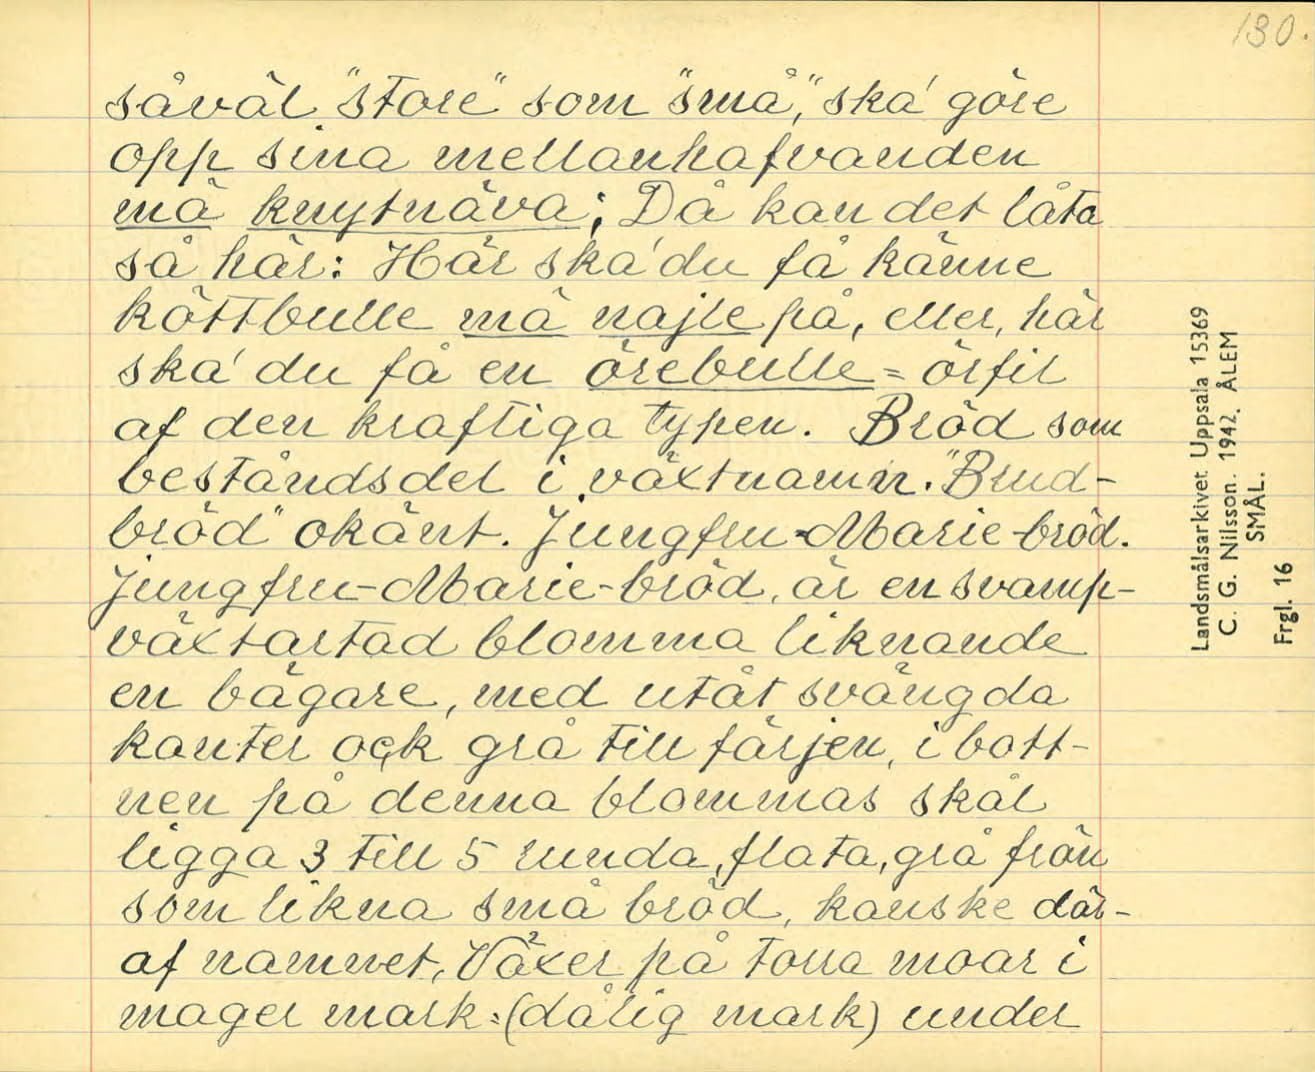 130.
såväl "store" som "små", ska' göre
opp sina mellanhafvanden
mä knytnäva; Då kan det låta
så här: Här ska' du få känne
köttbulle mä najle på, eller, här
ska' du få en örebulle = örfil
af den kraftiga typen. Bröd som
beståndsdel i växtnamn. "Brud-
bröd" okänt. Jungfru-Marie-bröd.
Jungfru-Marie-bröd, är en svamp-
växtartad blomma liknande
en bägare, med utåt svängda
kanter ock grå till färjen, i bott-
nen på denna blommas skål
ligga 3 till 5 runda, flata, grå frön
som likna små bröd, kanske där-
af namnet, Växer på torra moar i
mager mark = (dålig mark) under
Landsmålsarkivet Uppsala 15369
C. G. Nilsson. 1942. ÅLEM
SMÅL.
Frgl. 16